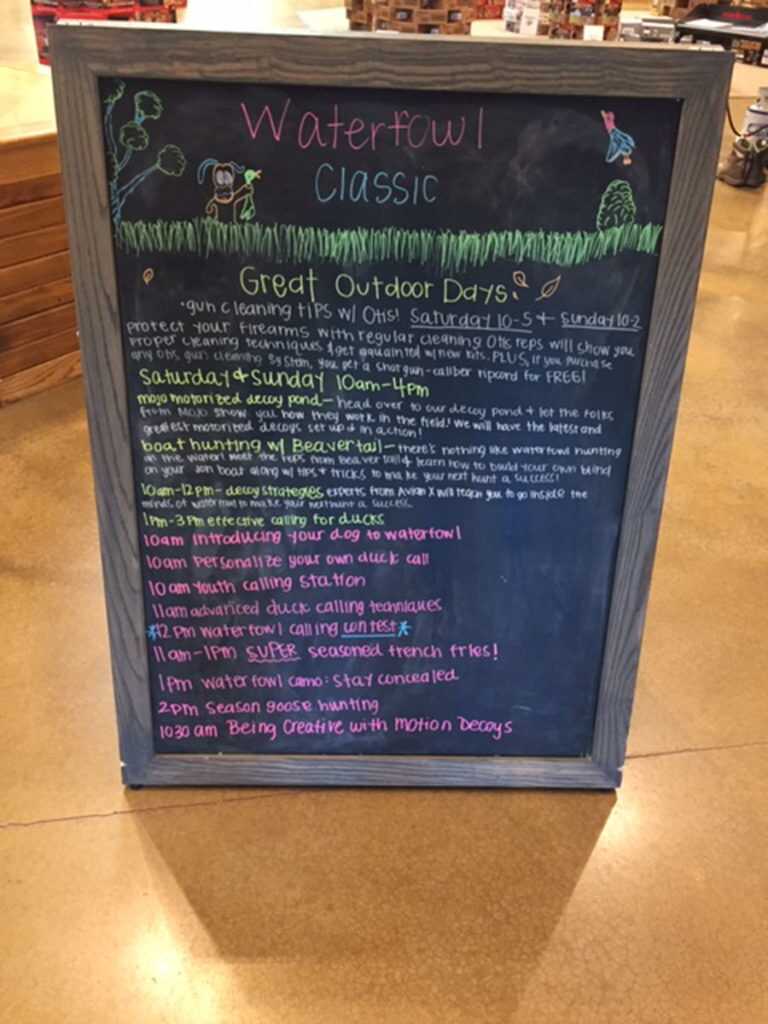 Waterfowl
Classic
Great Outdoor Days!
•gun cleaning tips w/ Otis! Saturday 10-5 + Sunday 10-2
protect your firearms with regular cleaning Otis reps will show you
proper cleaning techniques & get aquainted w/ new kits. PLUS, if you purchase
any Otis gun cleaning system, you get a shotgun-caliber ripcord for FREE!
Saturday & Sunday 10am-4pm
mojo motorized decoy pond- head over to our decoy pond + let the folks
from MOJO show you how they work in the field! we will have the latest and
greatest motorized decoys set up + in action!
boat hunting w/ Beavertail- there's nothing like waterfowl hunting
on the water! meet the reps from Beavertail & learn how to build your own blind
on your Jon boat along w/ tips + tricks to make your next hunt a success!
10am-12pm- decoy strategies experts from Avian X will teach you to go inside the
minds of waterfowl to make your next hunt a success.
1pm-3pm effective calling for ducks
10am introducing your dog to waterfowl
10am Personalize your own duck call
10am Youth calling station
11am advanced duck calling techniques
*12pm waterfowl calling contest*
11am-1pm SUPER seasoned french fries!
1pm waterfowl camo: stay concealed
2pm season goose hunting
1030 am Being Creative with Motion Decoys